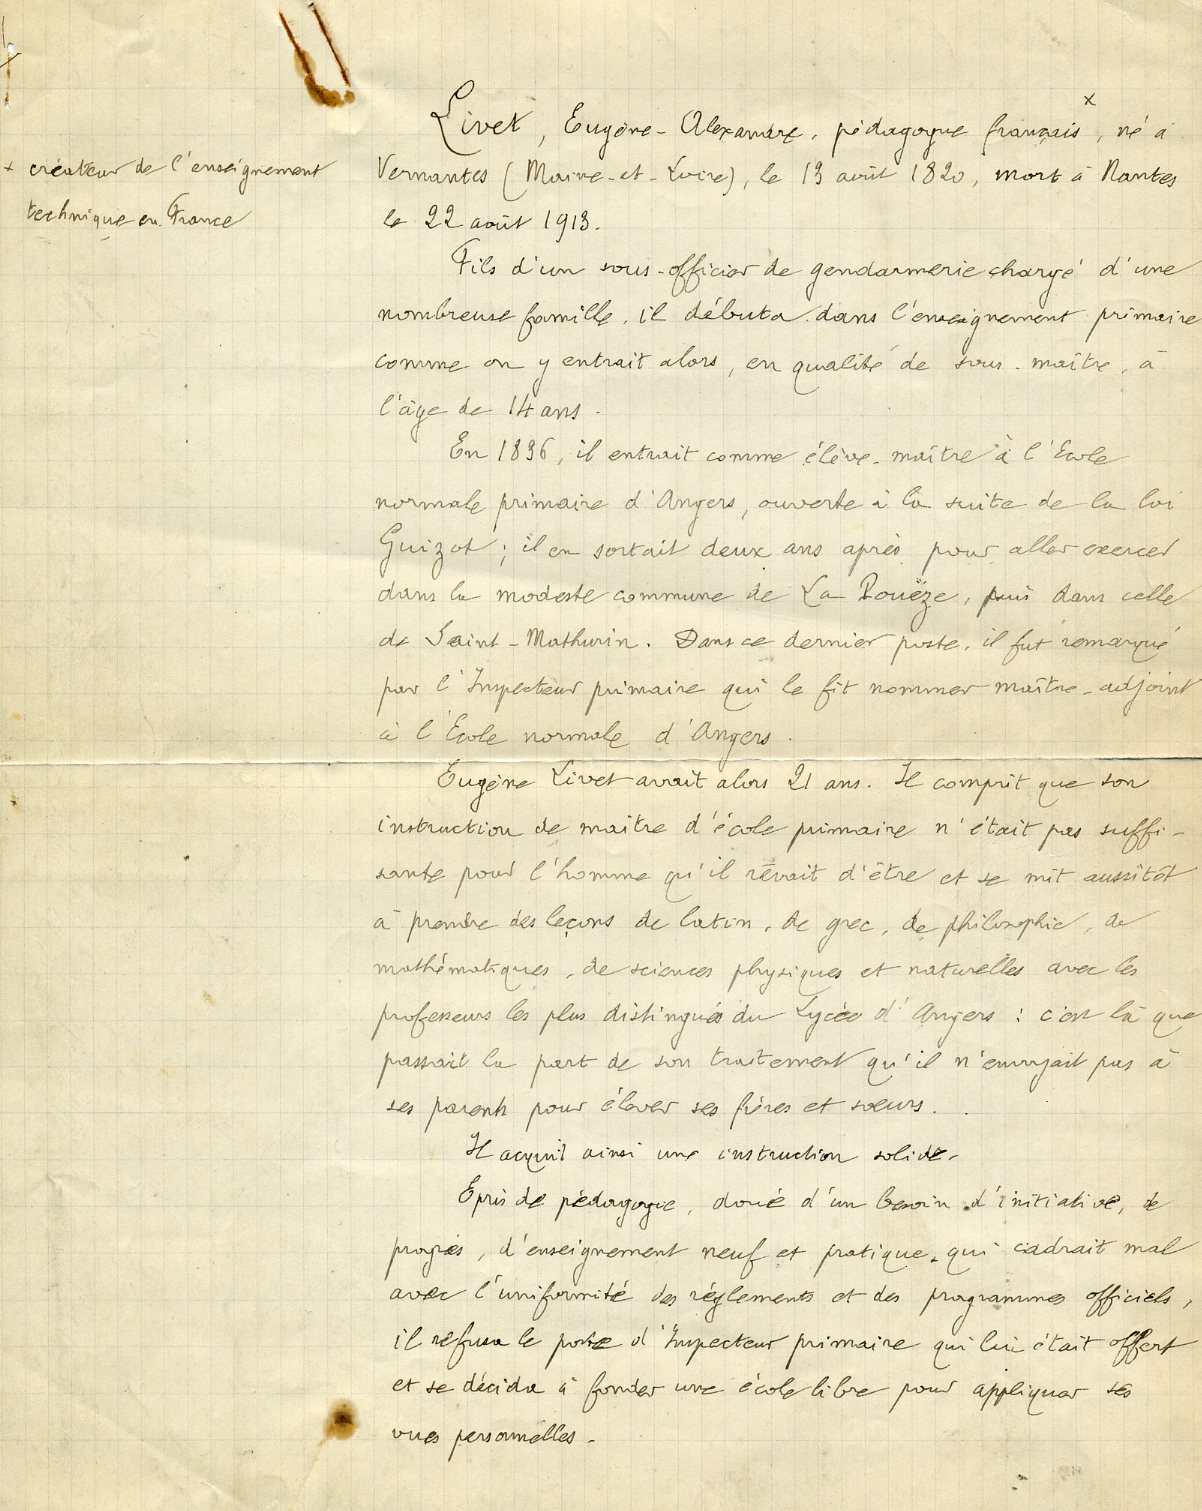 Livet, Eugène-Alexandre, pédagogue français x, né à
x créateur de l'enseignement
technique en France
Vernantes (Maine-et-Loire), le 13 août 1820, mort à Nantes
le 22 août 1913.
Fils d'un sous-officier de gendarmerie chargé d'une
nombreuse famille, il débuta dans l'enseignement primaire
comme on y entrait alors, en qualité de sous-maître, à
l'âge de 14 ans.
En 1836, il entrait comme élève-maître à l'Ecole
normale primaire d'Angers, ouverte à la suite de la loi
Guizot ; il en sortait deux ans après pour aller exercer
dans la modeste commune de La Pouëze, puis dans celle
de Saint-Mathurin. Dans ce dernier poste, il fut remarqué
par l'Inspecteur primaire qui le fit nommer maître-adjoint
à l'Ecole normale d'Angers.
Eugène Livet avait alors 21 ans. Il comprit que son
instruction de maître d'école primaire n'était pas suffi-
sante pour l'homme qu'il rêvait d'être et se mit aussitôt
à prendre des leçons de latin, de grec, de philosophie, de
mathématiques, de sciences physiques et naturelles avec les
professeurs les plus distingués du Lycée d'Angers : c'est là que
passait la part de son traitement qu'il n'envoyait pas à
ses parents pour élever ses frères et soeurs.
Il acquit ainsi une instruction solide.
Epris de pédagogie, doué d'un besoin d'initiative, de
progrès, d'enseignement neuf et pratique, qui cadrait mal
avec l'uniformité des règlements et des programmes officiels,
il refusa le poste d'Inspecteur primaire qui lui était offert
et se décida à fonder une école libre pour appliquer ses
vues personnelles.